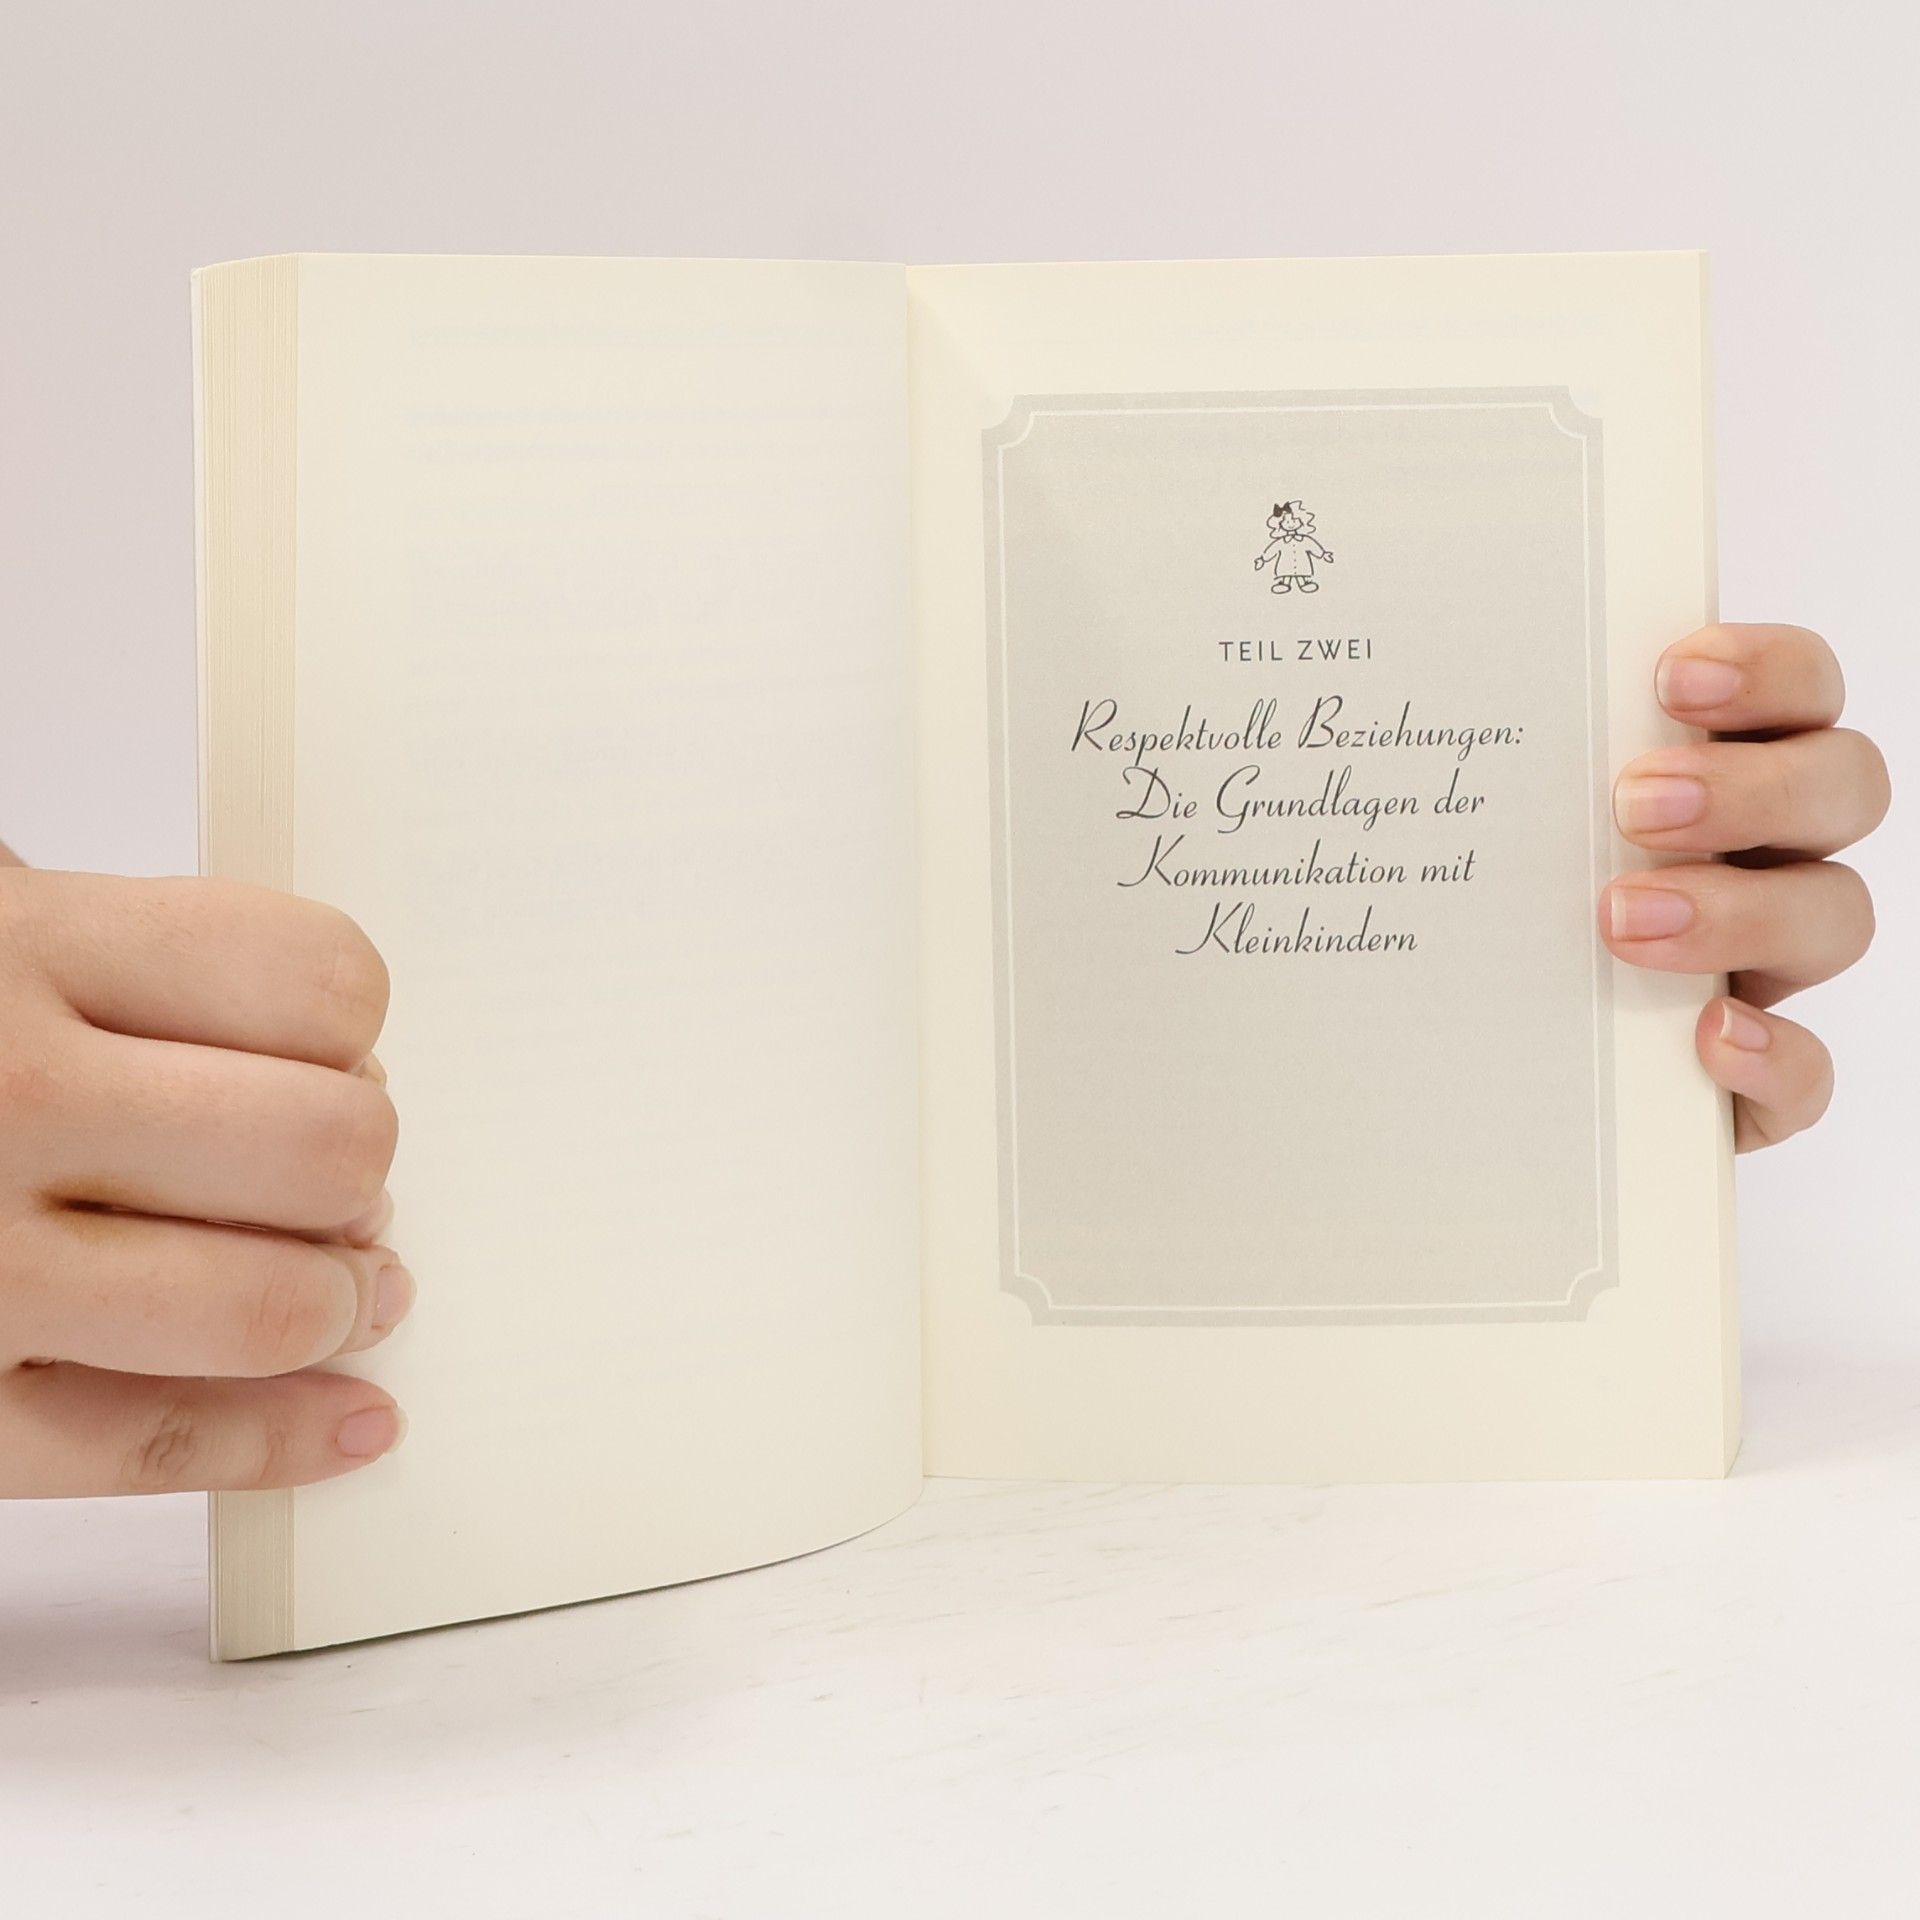 TEIL ZWEI
Respektvolle Beziehungen:
Die Grundlagen der
Kommunikation mit
Kleinkindern